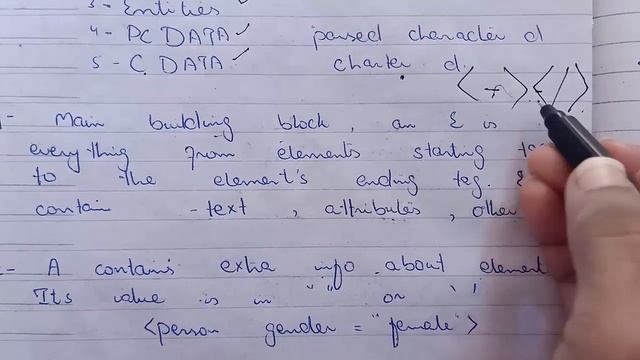 3 - Entities ✓
4 - PC DATA ✓ parsed character d
5 - C. DATA ✓ charter d.
Main building block, an E is
everything from elements starting
to the element's ending teg.
contain - text, attributes, other
- A contains extra info about element
Its value is in " " or ' '
<person gender = "female">